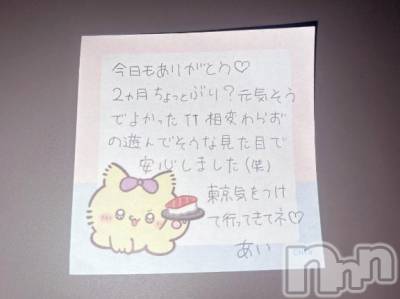 今日もありがとう♡
2ヵ月ちょっとぶり?元気そう
でよかったTT 相変わらず
の遊んでそうな見た目で
安心しました(笑)
東京気をつけ
て行ってきてネ♡
あい
nnn